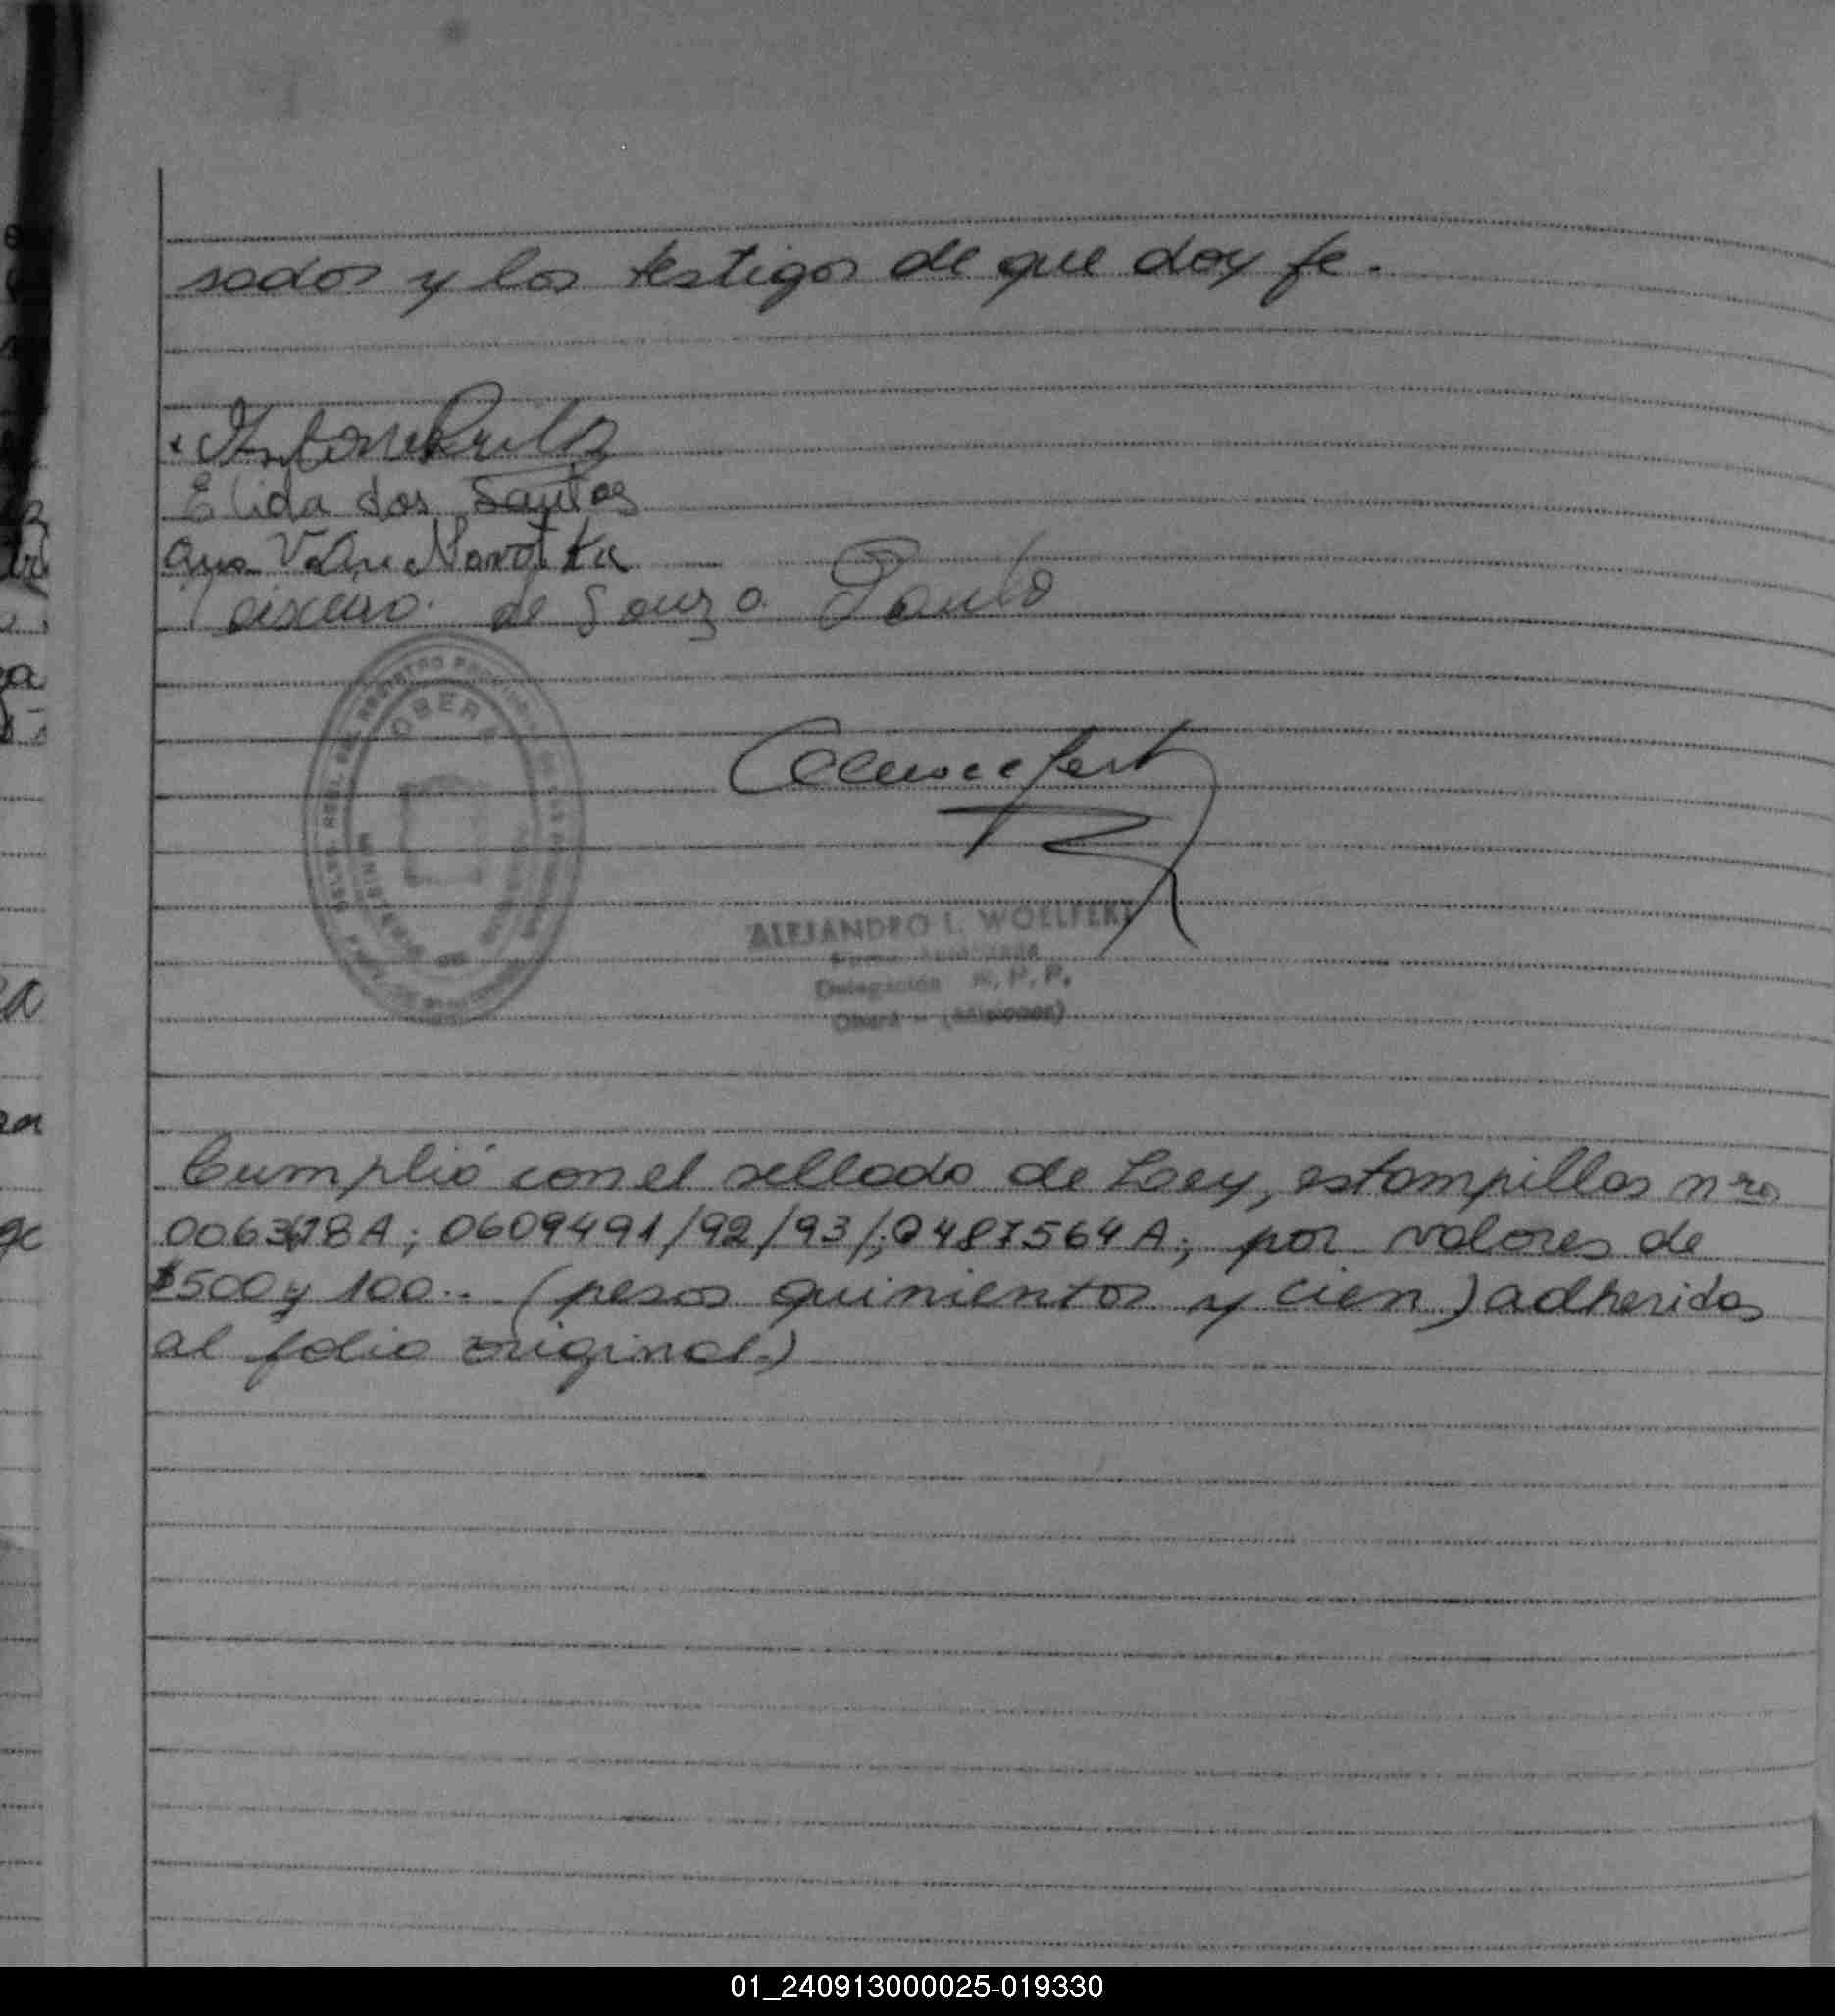 sados y los testigos de que doy fe.
Elida dos Santos
Ana
de Souza Paulo
OBERA
MINISTERIO DE
ALEJANDRO L. WOELFERT
Delegación R. P. P.
Oberá - (Misiones)
Cumplió con el sellado de Ley, estampillas nros
0609491/92/93/; 0487564A; por valores de
$500 y 100.- (pesos quinientos y cien) adheridas
al folio original.)
01_240913000025-019330